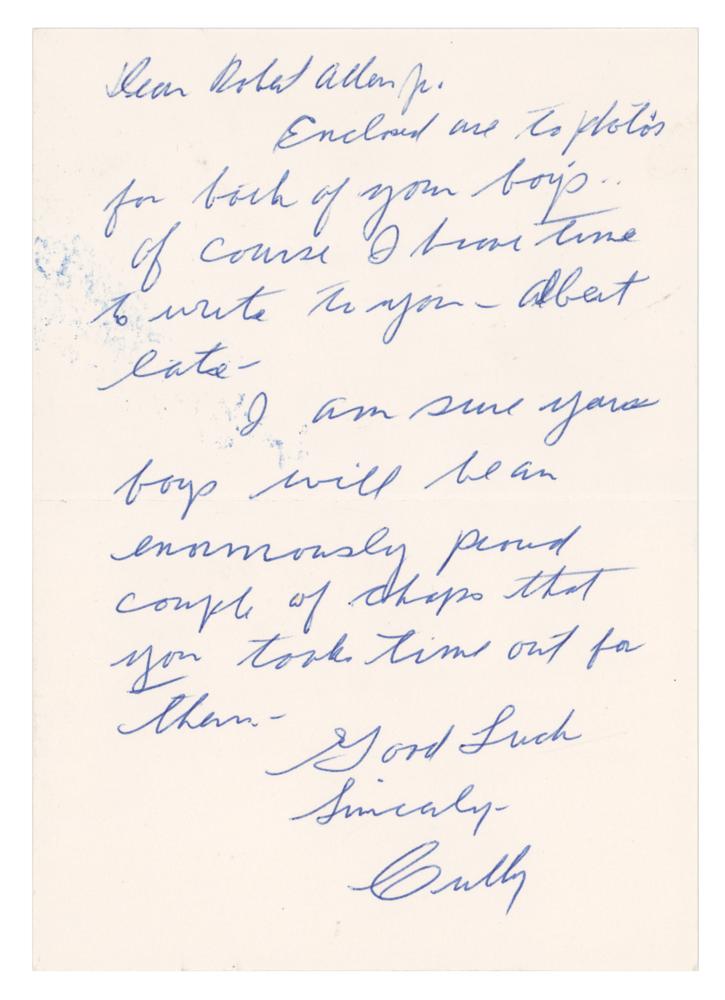 Dear Robert Allen Jr.
Enclosed are to photo's
for both of your boys..
of course I have time
to write to you – Albeit
late –
I am sure your
boys will be an
enormously proud
couple of chaps that
you took time out for
them –
Good Luck
Sincerely –
Cully